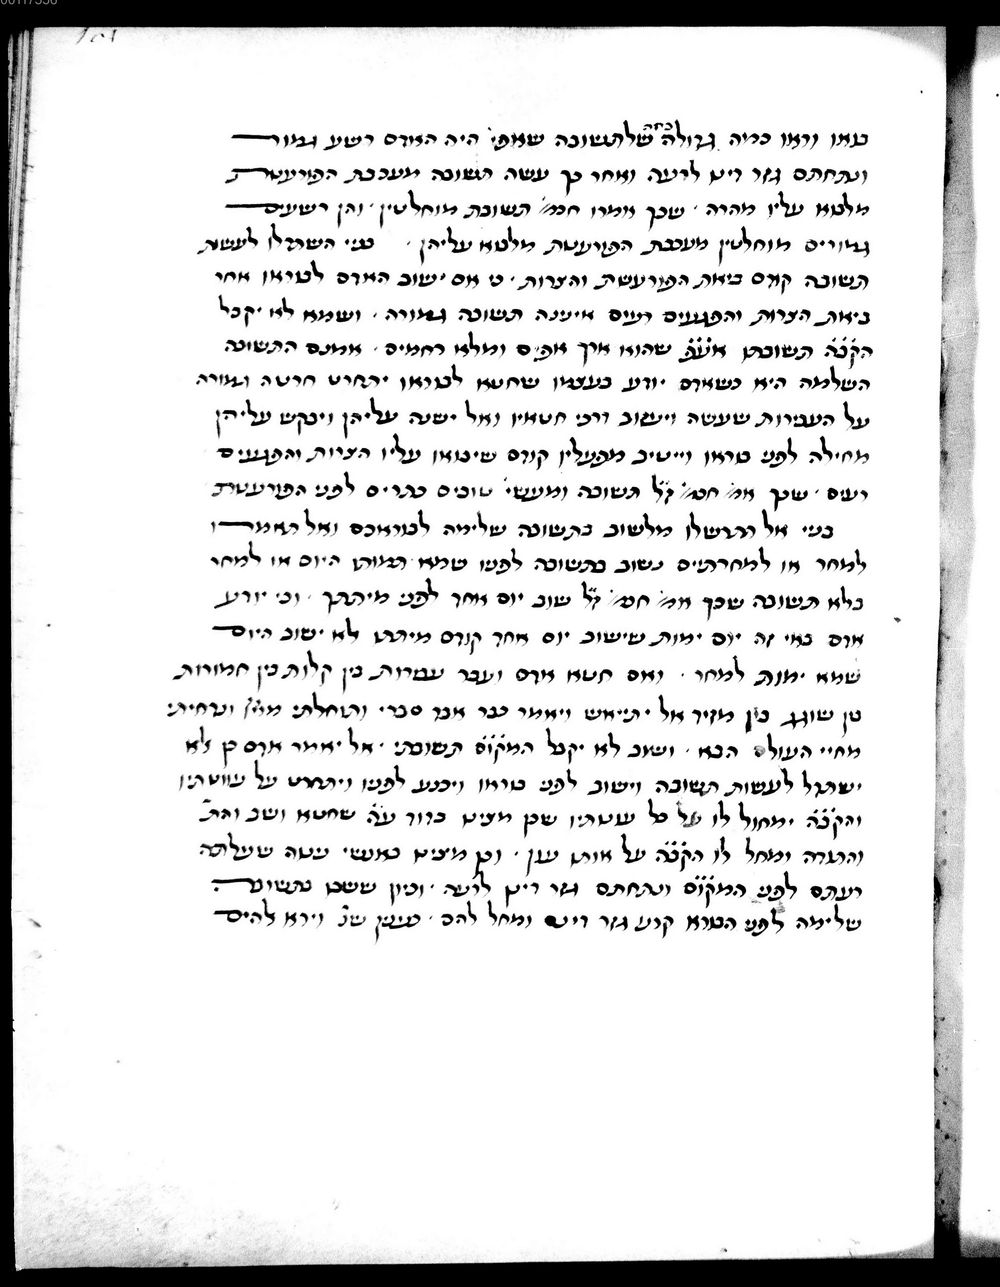 בואו וראו כמה גדולה כחה של תשובה שאפי' היה האדם רשע גמור
ונתחתם גזר דינו לרעה ואחר כך עשה תשובה מעכבת הפורענות
מלבוא עליו מהרה · שכך אמרו חכמ' תשובת מוחלטין · והן רשעים
גמורים מוחלטין מעכבת הפורענות מלבוא עליהן · בני השתדלו לעשות
תשובה קודם ביאת הפורענות והצרות · כי אם ישוב האדם לבוראו אחר
ביאת הצרות והפגעים רעים אינינה תשובה גמורה · ושמא לא יקבל
הקב"ה תשובתו אע"פ שהוא ארך אפים ומלא רחמים · אמנם התשובה
השלמה היא כשאדם יודע בעצמו שחטא לבוראו יתחרט חרטה גמורה
על העבירות שעשה ויעזוב דרכי חטאיו ואל ישנה עליהן ויבקש עליהן
מחילה לפני בוראו וייטיב מפעליו קודם שיבואו עליו הצרות והפגעים
רעים · שכך אמ' חכמ' ז"ל תשובה ומעשי' טובים כתריס לפני הפורענות
בניי אל תתרשלו מלשוב בתשובה שלימה לבוראכם ואל תאמרו
למחר או למחרתיים נשוב בתשובה לפניו שמא תמותו היום או למחר
בלא תשובה שכך אמ' חכמ' ז"ל שוב יום אחד לפני מיתתך · וכי יודע
אדם באי זה יום ימות שישוב יום אחד קודם מיתתו לא ישוב היום
שמא ימות למחר · ואם חטא אדם ועבר עבירות בין קלות בין חמורות
בין שוגג בין מזיד אל יתייאש ויאמר כבר אבד סברי ותוחלתי מיי"י ונדחיתי
מחיי העולם הבא · ושוב לא יקבל המקום תשובתי · אל יאמר אדם כן אלא
ישתדל לעשות תשובה וישוב לפני בוראו ויכנע לפניו ויתחרט על עונותיו
והקב"ה ימחול לו על כל עונותיו שכן מצינו בדוד ע"ה שחטא ושב והת'
והתודה ומחל לו הקב"ה על אותו עון · וכן מצינו באנשי נינוה שעלתה
רעתם לפני המקום ונתחתם גזר דינו לרעה · וכיון ששבו בתשובה
שלימה לפני הבורא קרע גזר דינם ומחל להם · כענין שנ' וירא להים